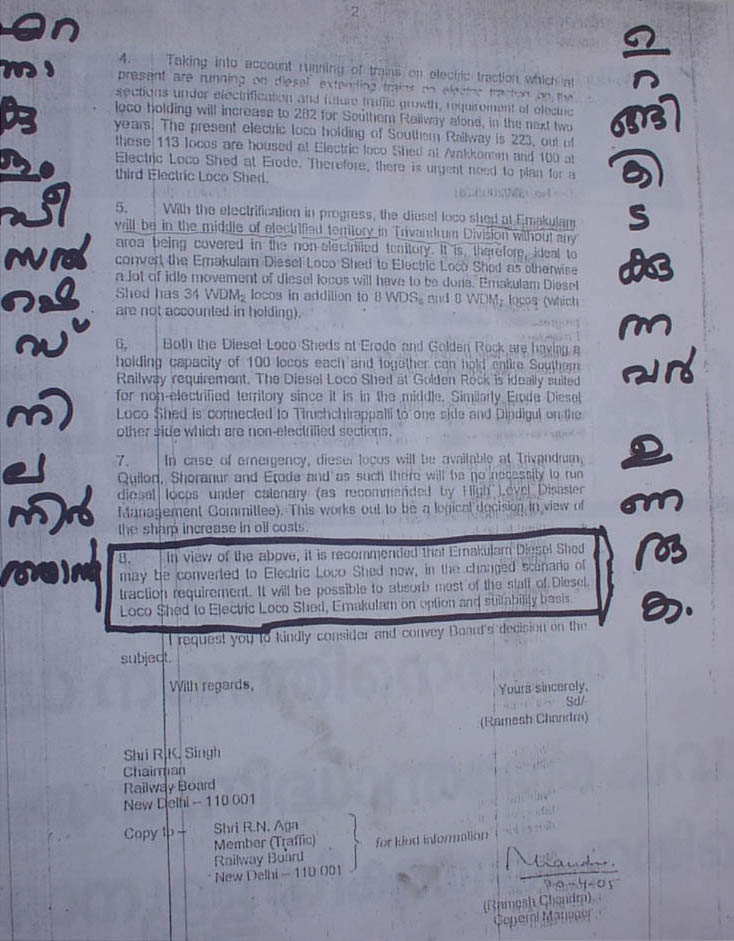 2
4. Taking into account running of trains on electric traction which at
present are running on diesel extending trains on electric traction on the
sections under electrification and future traffic growth, requirement of electric
loco holding will increase to 282 for Southern Railway alone, in the next two
years. The present electric loco holding of Southern Railway is 223, out of
these 113 locos are housed at Electric loco Shed at Arakkonam and 100 at
Electric Loco Shed at Erode. Therefore, there is urgent need to plan for a
third Electric Loco Shed.
5. With the electrification in progress, the diesel loco shed at Ernakulam
will be in the middle of electrified territory in Trivandrum Division without any
area being covered in the non-electrified territory. It is, therefore, ideal to
convert the Ernakulam Diesel Loco Shed to Electric Loco Shed as otherwise
a lot of idle movement of diesel locos will have to be done. Ernakulam Diesel
Shed has 34 WDM₂ locos in addition to 8 WDS₆ and 8 WDM₂ locos (which
are not accounted in holding).
6. Both the Diesel Loco Sheds at Erode and Golden Rock are having a
holding capacity of 100 locos each and together can hold entire Southern
Railway requirement. The Diesel Loco Shed at Golden Rock is ideally suited
for non-electrified territory since it is in the middle. Similarly Erode Diesel
Loco Shed is connected to Tiruchchirappalli to one side and Dindigul on the
other side which are non-electrified sections.
7. In case of emergency, diesel locos will be available at Trivandrum,
Quilon, Shoranur and Erode and as such there will be no necessity to run
diesel locos under catenary (as recommended by High Level Disaster
Management Committee). This works out to be a logical decision in view of
the sharp increase in oil costs.
8. In view of the above, it is recommended that Ernakulam Diesel Shed
may be converted to Electric Loco Shed now, in the changed scenario of
traction requirement. It will be possible to absorb most of the staff of Diesel
Loco Shed to Electric Loco Shed, Ernakulam on option and suitability basis.
I request you to kindly consider and convey Board's decision on the
subject.
With regards,
Yours sincerely,
Sd/-
(Ramesh Chandra)
Shri R.K. Singh
Chairman
Railway Board
New Delhi – 110 001
Copy to – Shri R.N. Aga
Member (Traffic)
Railway Board
New Delhi – 110 001
for kind information
20-4-05
(Ramesh Chandra)
General Manager
എറ
ണാ
കു
ളം
ഡീ
സൽ
ഷെ
ഡ്
നി
ല
നിർ
ത്താൻ
ഉ
റ
ങ്ങി
കി
ട
ക്കു
ന്ന
വർ
ഉ
ണ
രു
ക.